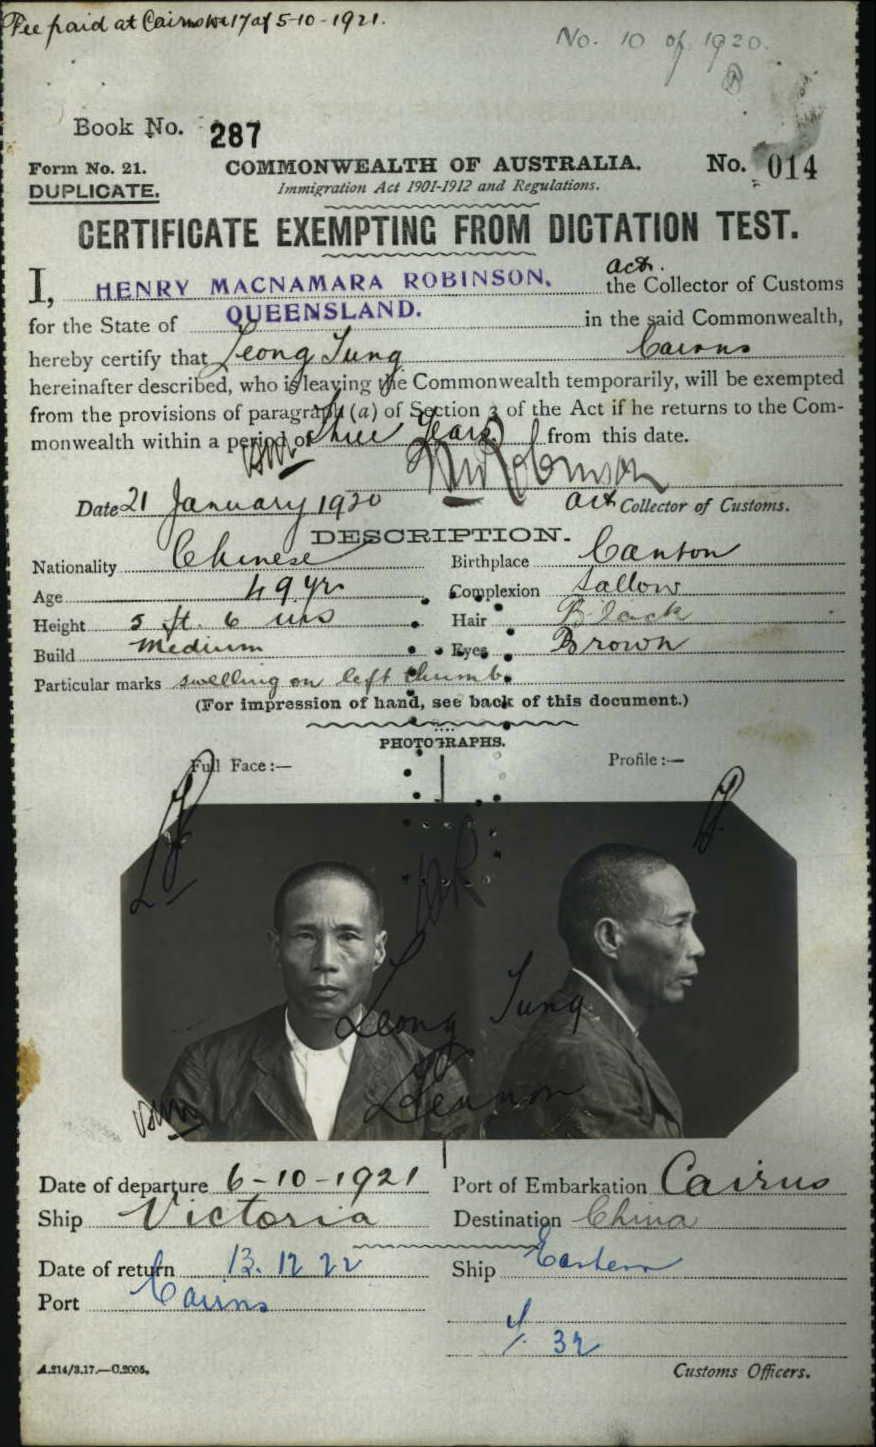 Fee paid at Cairns 17 of 5-10-1921.
No. 10 of 1920.
Book No. 287
Form No. 21. COMMONWEALTH OF AUSTRALIA. No. 014
DUPLICATE. Immigration Act 1901-1912 and Regulations.
CERTIFICATE EXEMPTING FROM DICTATION TEST.
act.
I, HENRY MACNAMARA ROBINSON, the Collector of Customs
for the State of QUEENSLAND. in the said Commonwealth,
hereby certify that Leong Tung Cairns
hereinafter described, who is leaving the Commonwealth temporarily, will be exempted
from the provisions of paragraph (a) of Section 3 of the Act if he returns to the Com-
monwealth within a period of three years from this date.
HMRobinson
Date 21 January 1920 act Collector of Customs.
DESCRIPTION.
Nationality Chinese Birthplace Canton
Age 49 yrs Complexion Sallow
Height 5 ft. 6 ins Hair Black
Build Medium Eyes Brown
Particular marks swelling on left thumb
(For impression of hand, see back of this document.)
PHOTOGRAPHS.
Full Face:— Profile:—
Leong Tung
Date of departure 6-10-1921 Port of Embarkation Cairns
Ship Victoria Destination China
Date of return 13.12 22 Ship Eastern
Port Cairns
32
A.214/3.17.—C.2005. Customs Officers.